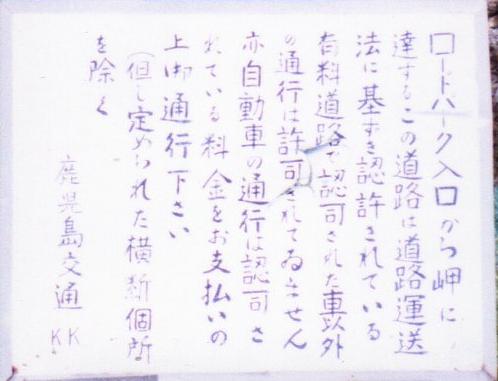 ロードパーク入口から岬に
達するこの道路は道路運送
法に基ずき認許されている
有料道路で認可された車以外
の通行は許可されてゐません
亦自動車の通行は認可さ
れている料金をお支払いの
上御通行下さい
(但し定められた横断個所
を除く
鹿児島交通KK